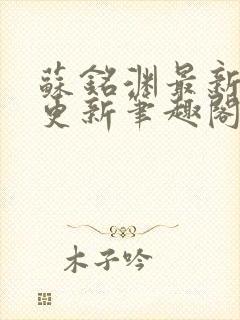 蘇銘渊最新
更新筆趣閣
木子吟